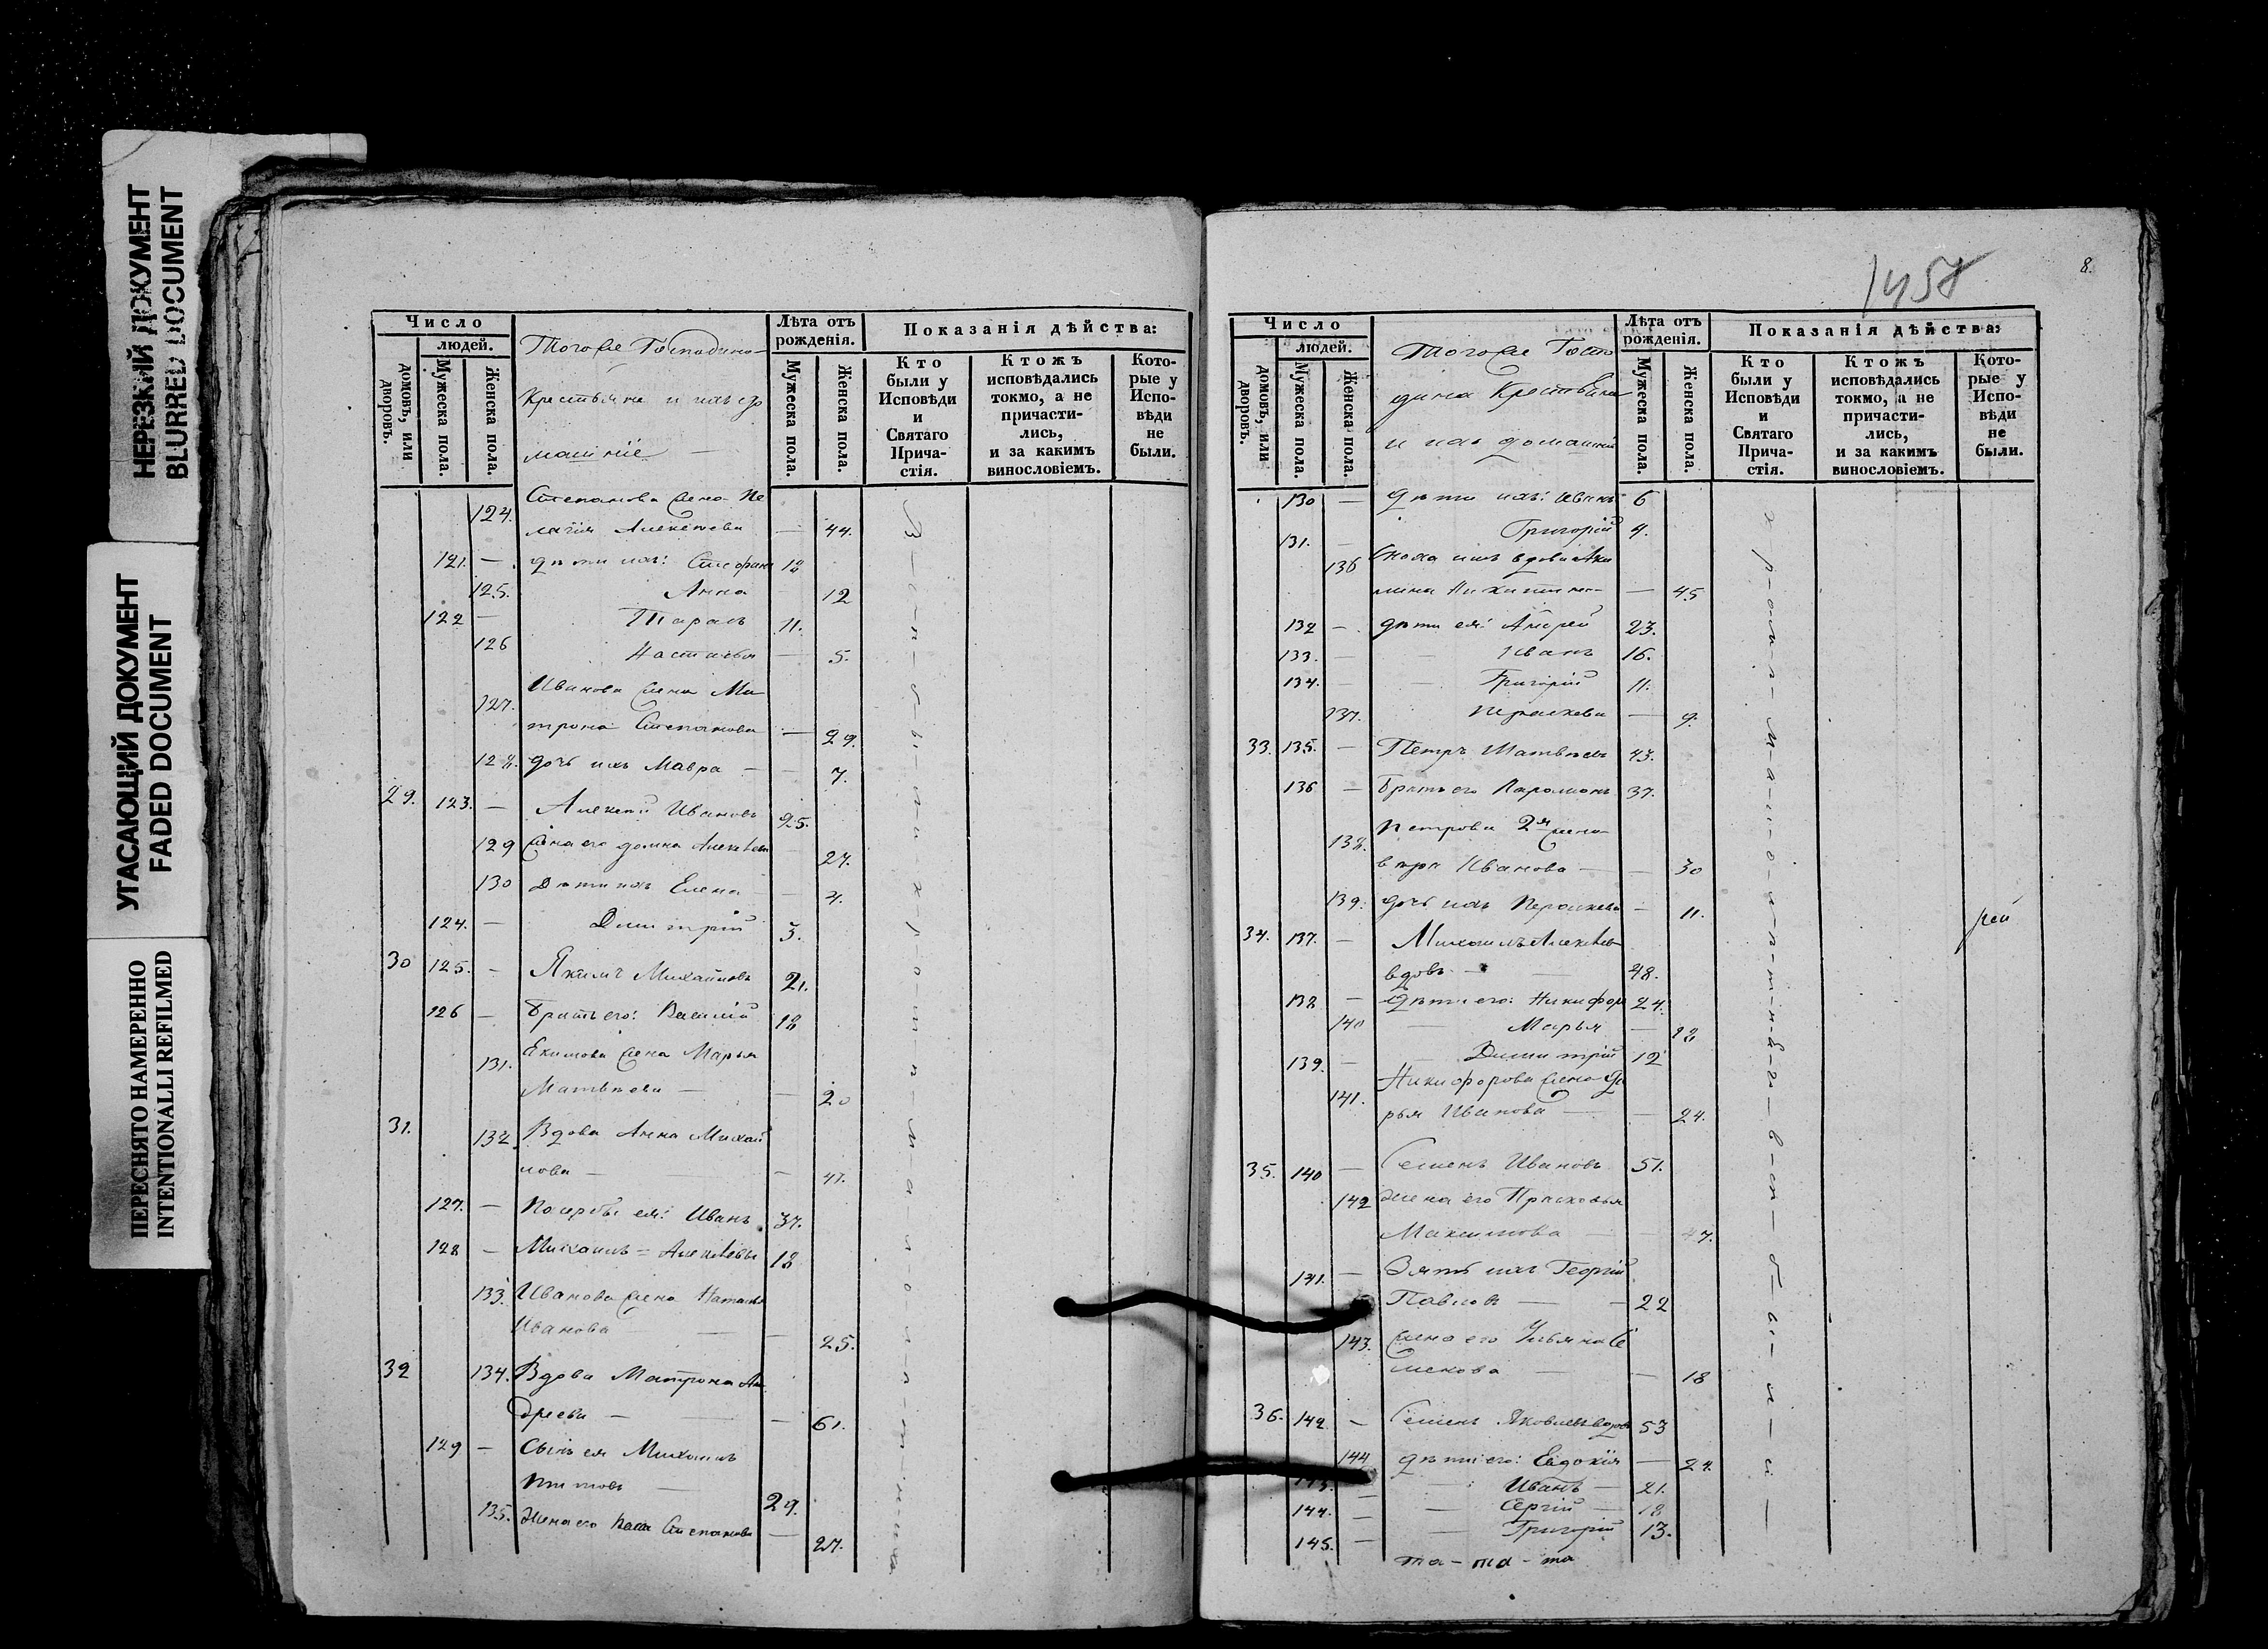 НЕРЕЗКИЙ ДОКУМЕНТ
BLURRED DOCUMENT
УГАСАЮЩИЙ ДОКУМЕНТ
FADED DOCUMENT
ПЕРЕСНЯТО НАМЕРЕННО
INTENTIONALLI REFILMED
Число
людей.
домовъ, или дворовъ.
Мужеска пола.
Женска пола.
Тогоже Господина
Крестьяне и ихъ до
машніе
Лѣта отъ рожденія.
Мужеска пола.
Женска пола.
Показанія дѣйства:
Кто были у Исповѣди и Святаго Прича- стія.
Ктожъ исповѣдались токмо, а не причасти- лись, и за какимъ винословіемъ.
Кото- рые у Испо- вѣди не были.
124. Степанова жена Пе
лагія Алексѣева — 44.
121. — дѣти ихъ: Стефанъ 18
125. Анна — 12
122 — Тарасъ 11.
126 Настасья — 5.
127. Иванова жена Ма
трона Степанова — 29.
128. дочь ихъ Мавра — 7.
29. 123. — Алексѣй Ивановъ 25.
129 жена его Домна Алексѣева 27.
130 Дѣти ихъ Елена — 4.
124. — Димитрій 3.
30 125. — Якимъ Михайловъ 21.
126 — Братъ его: Василій 18
131. Екимова жена Марья
Матвѣева — 20
31. 132. Вдова Анна Михай
лова — 41.
127. — Иванъ 37.
128 — Михаилъ = Алексѣевы 18
133. Иванова жена Наталья
Иванова — 25.
32 134. Вдова Матрона Ан
дреева — 61.
129 — Сынъ ея Михаилъ
Титовъ — 29.
135. Жена его Степанова — 27.
1458
8.
Число
людей.
домовъ, или дворовъ.
Мужеска пола.
Женска пола.
Тогоже Госпо
дина Крестьяне
и ихъ домашніе
Лѣта отъ рожденія.
Мужеска пола.
Женска пола.
Показанія дѣйства:
Кто были у Исповѣди и Святаго Прича- стія.
Ктожъ исповѣдались токмо, а не причасти- лись, и за какимъ винословіемъ.
Кото- рые у Испо- вѣди не были.
130 — дѣти ихъ: Иванъ 6
131. — Григорій 4.
136 Сноха ихъ вдова Аки
лина Никитина — 45
132 — дѣти ея: Андрей 23.
133. — Иванъ 16.
134. — Григорій 11.
137. Парасковья — 9.
33. 135. — Петръ Матвѣевъ 43.
136 — Братъ его Парамонъ 37.
138. Петрова 2я жена
Иванова — 30
139. дочь ихъ Парасковья — 11.
34. 137. — Михаилъ Алексѣевъ
вдовъ — 48.
138 — Дѣти его: Никифоръ 24.
140 — Марья — 22
139. — Димитрій 12
141. Никифорова жена Да
рья Иванова — 24.
35. 140 — Семенъ Ивановъ 51.
142 Жена его Прасковья
Максимова — 47.
141. — Зять ихъ Георгій
Павловъ — 22
143. жена его Ульяна Се
менова — 18
36. 142. — Семенъ Яковлевъ вдовъ 53
144 дѣти его: Евдокія — 24.
143. — Иванъ — 21.
144. — Сергій — 18
145. — Григорій 13.
та - та - та
рей